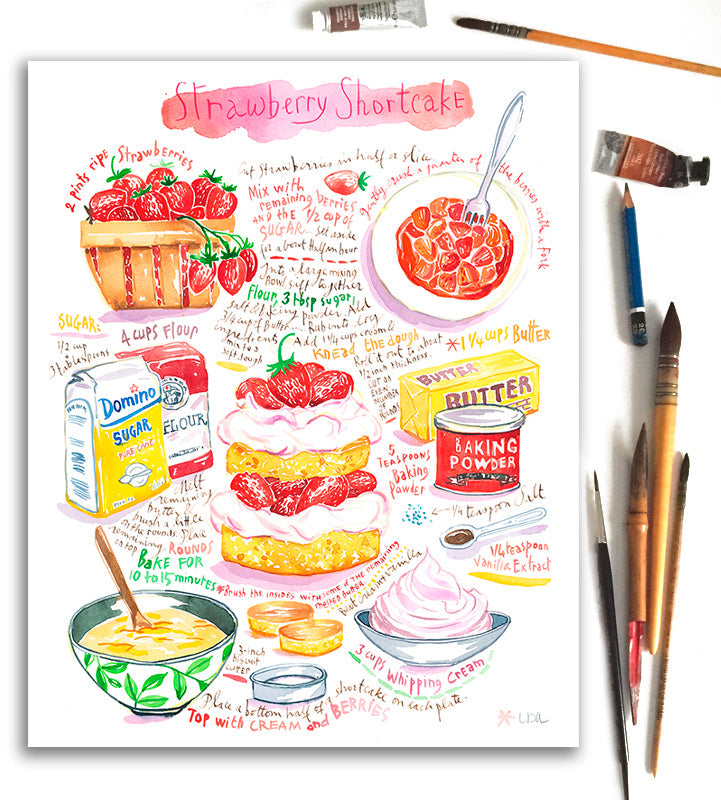 Strawberry Shortcake
2 pints ripe Strawberries
Cut Strawberries in half or slice
Gently crush a quarter of the berries with a fork
Mix with
remaining berries
AND the 1/2 cup of
SUGAR... Set aside
for about Half an hour
Into a large mixing
Bowl sift together
Flour, 3 tbsp sugar,
salt & baking powder. Add
3/4 cup of Butter..... Rub into dry
ingredients. Add 1 1/4 cups cream &
mix to a
soft dough
Knead the dough
Roll it out to about
1/2 inch thickness.
Cut an
EVEN
NUMBER
OF
ROUNDS
SUGAR:
1/2 cup
3 tablespoons
4 cups Flour
*1 1/4 cups Butter
Domino
SUGAR
PURE CANE
FLOUR
BUTTER
BUTTER
BAKING
POWDER
5
TEASPOONS
Baking
Powder
1/4 teaspoon Salt
1/4 teaspoon
Vanilla Extract
Melt
remaining
butter &
brush a little
on the rounds. Place
remaining ROUNDS
on top
BAKE FOR
10 to 15 minutes
*Brush the insides with some of the remaining
melted butter
Beat cream & vanilla
3-inch
biscuit
cutter
3 cups Whipping Cream
Place a bottom half of shortcake on each plate.
Top with CREAM and BERRIES